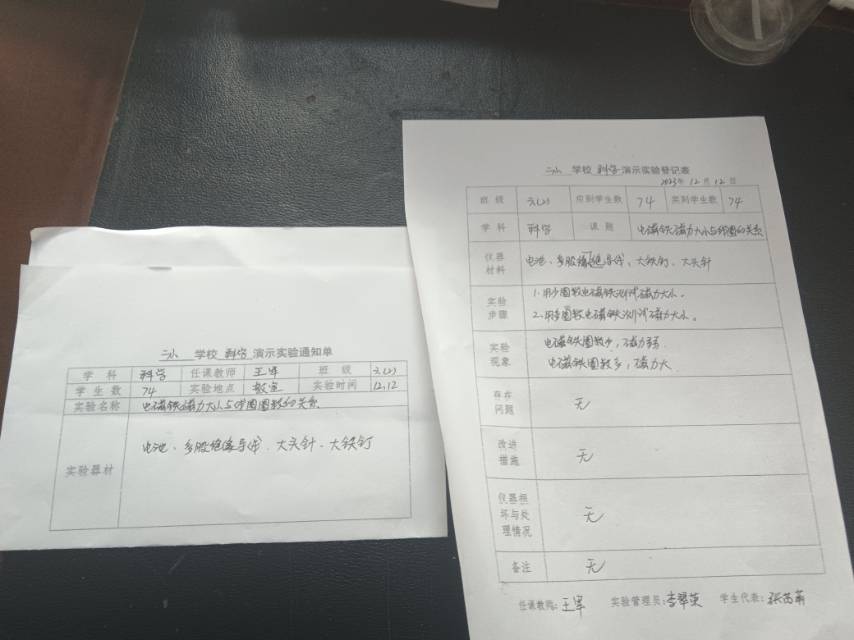 二小 学校 科学 演示实验通知单
学科 科学 任课教师 王军 班级 六(2)
学生数 74 实验地点 教室 实验时间 12.12
实验名称 电磁铁磁力大小与线圈圈数的关系
实验器材 电池、多股绝缘导线、大头针、大铁钉
二小 学校 科学 演示实验登记表
2023年12月12日
班级 六(2) 应到学生数 74 实到学生数 74
学科 科学 课题 电磁铁磁力大小与线圈的关系
仪器材料 电池、多股绝缘导线、大铁钉、大头针
实验步骤 1.用少圈数电磁铁测试磁力大小。
2.用多圈数电磁铁测试磁力大小。
实验现象 电磁铁圈数少,磁力弱
电磁铁圈数多,磁力大
存在问题 无
改进措施 无
仪器损坏与处理情况 无
备注 无
任课教师:王军 实验管理员:李翠英 学生代表: